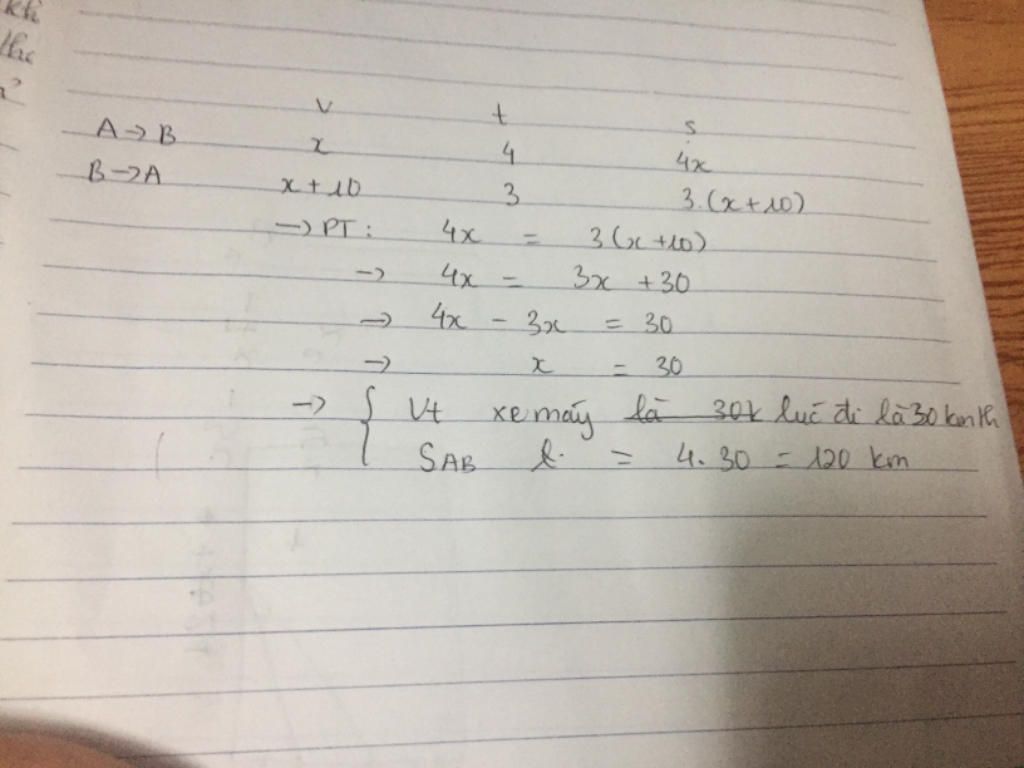 kh
the
n?
v t s
A → B x 4 4x
B → A x + 10 3 3.(x+10)
→ PT: 4x = 3(x+10)
→ 4x = 3x + 30
→ 4x - 3x = 30
→ x = 30
→ { Vt xe máy là 30k lúc đi là 30 km/h
SAB = 4.30 = 120 km